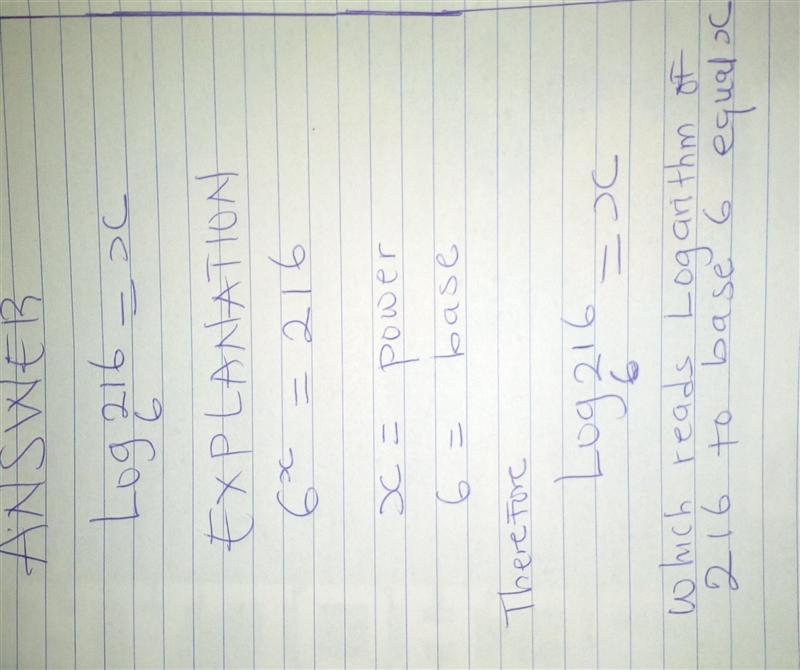 ANSWER
Log 216 = x
6
EXPLANATION
6ˣ = 216
x = power
6 = base
Therefore
Log 216 = x
6
which reads Logarithm of
216 to base 6 equal x